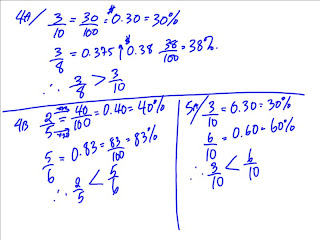 4A/ 3/10 = 30/100 = 0.30 = 30%
3/8 = 0.375 ↑ 0.38 38/100 = 38%
∴ 3/8 > 3/10
4B 2/5 = 40/100 = 0.40 = 40%
5/6 = 0.83 = 83/100 = 83%
∴ 2/5 < 5/6
5A/ 3/10 = 0.30 = 30%
6/10 = 0.60 = 60%
∴ 3/10 < 6/10